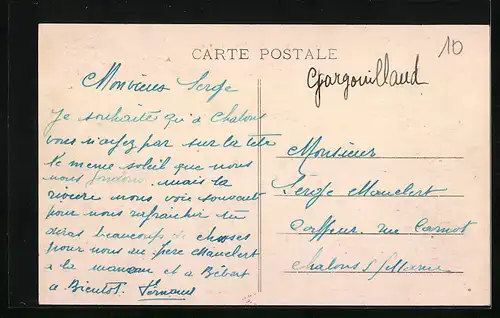 CARTE POSTALE
10
Gargouillaud
Mon vieux Serge
Je souhaite qu'a Chalons
vous n'ayez pas sur la tete
le meme soleil que nous
nous fondons, mais la
riviere nous voie souvent
pour nous rafraichir tu
diras beaucoup de choses
pour nous au frere Mauclert
a la maman et a Bebert
a Bientot. Fernand
Monsieur
Serge Mauclert
Coiffeur rue Carnot
Chalons s/ Marne